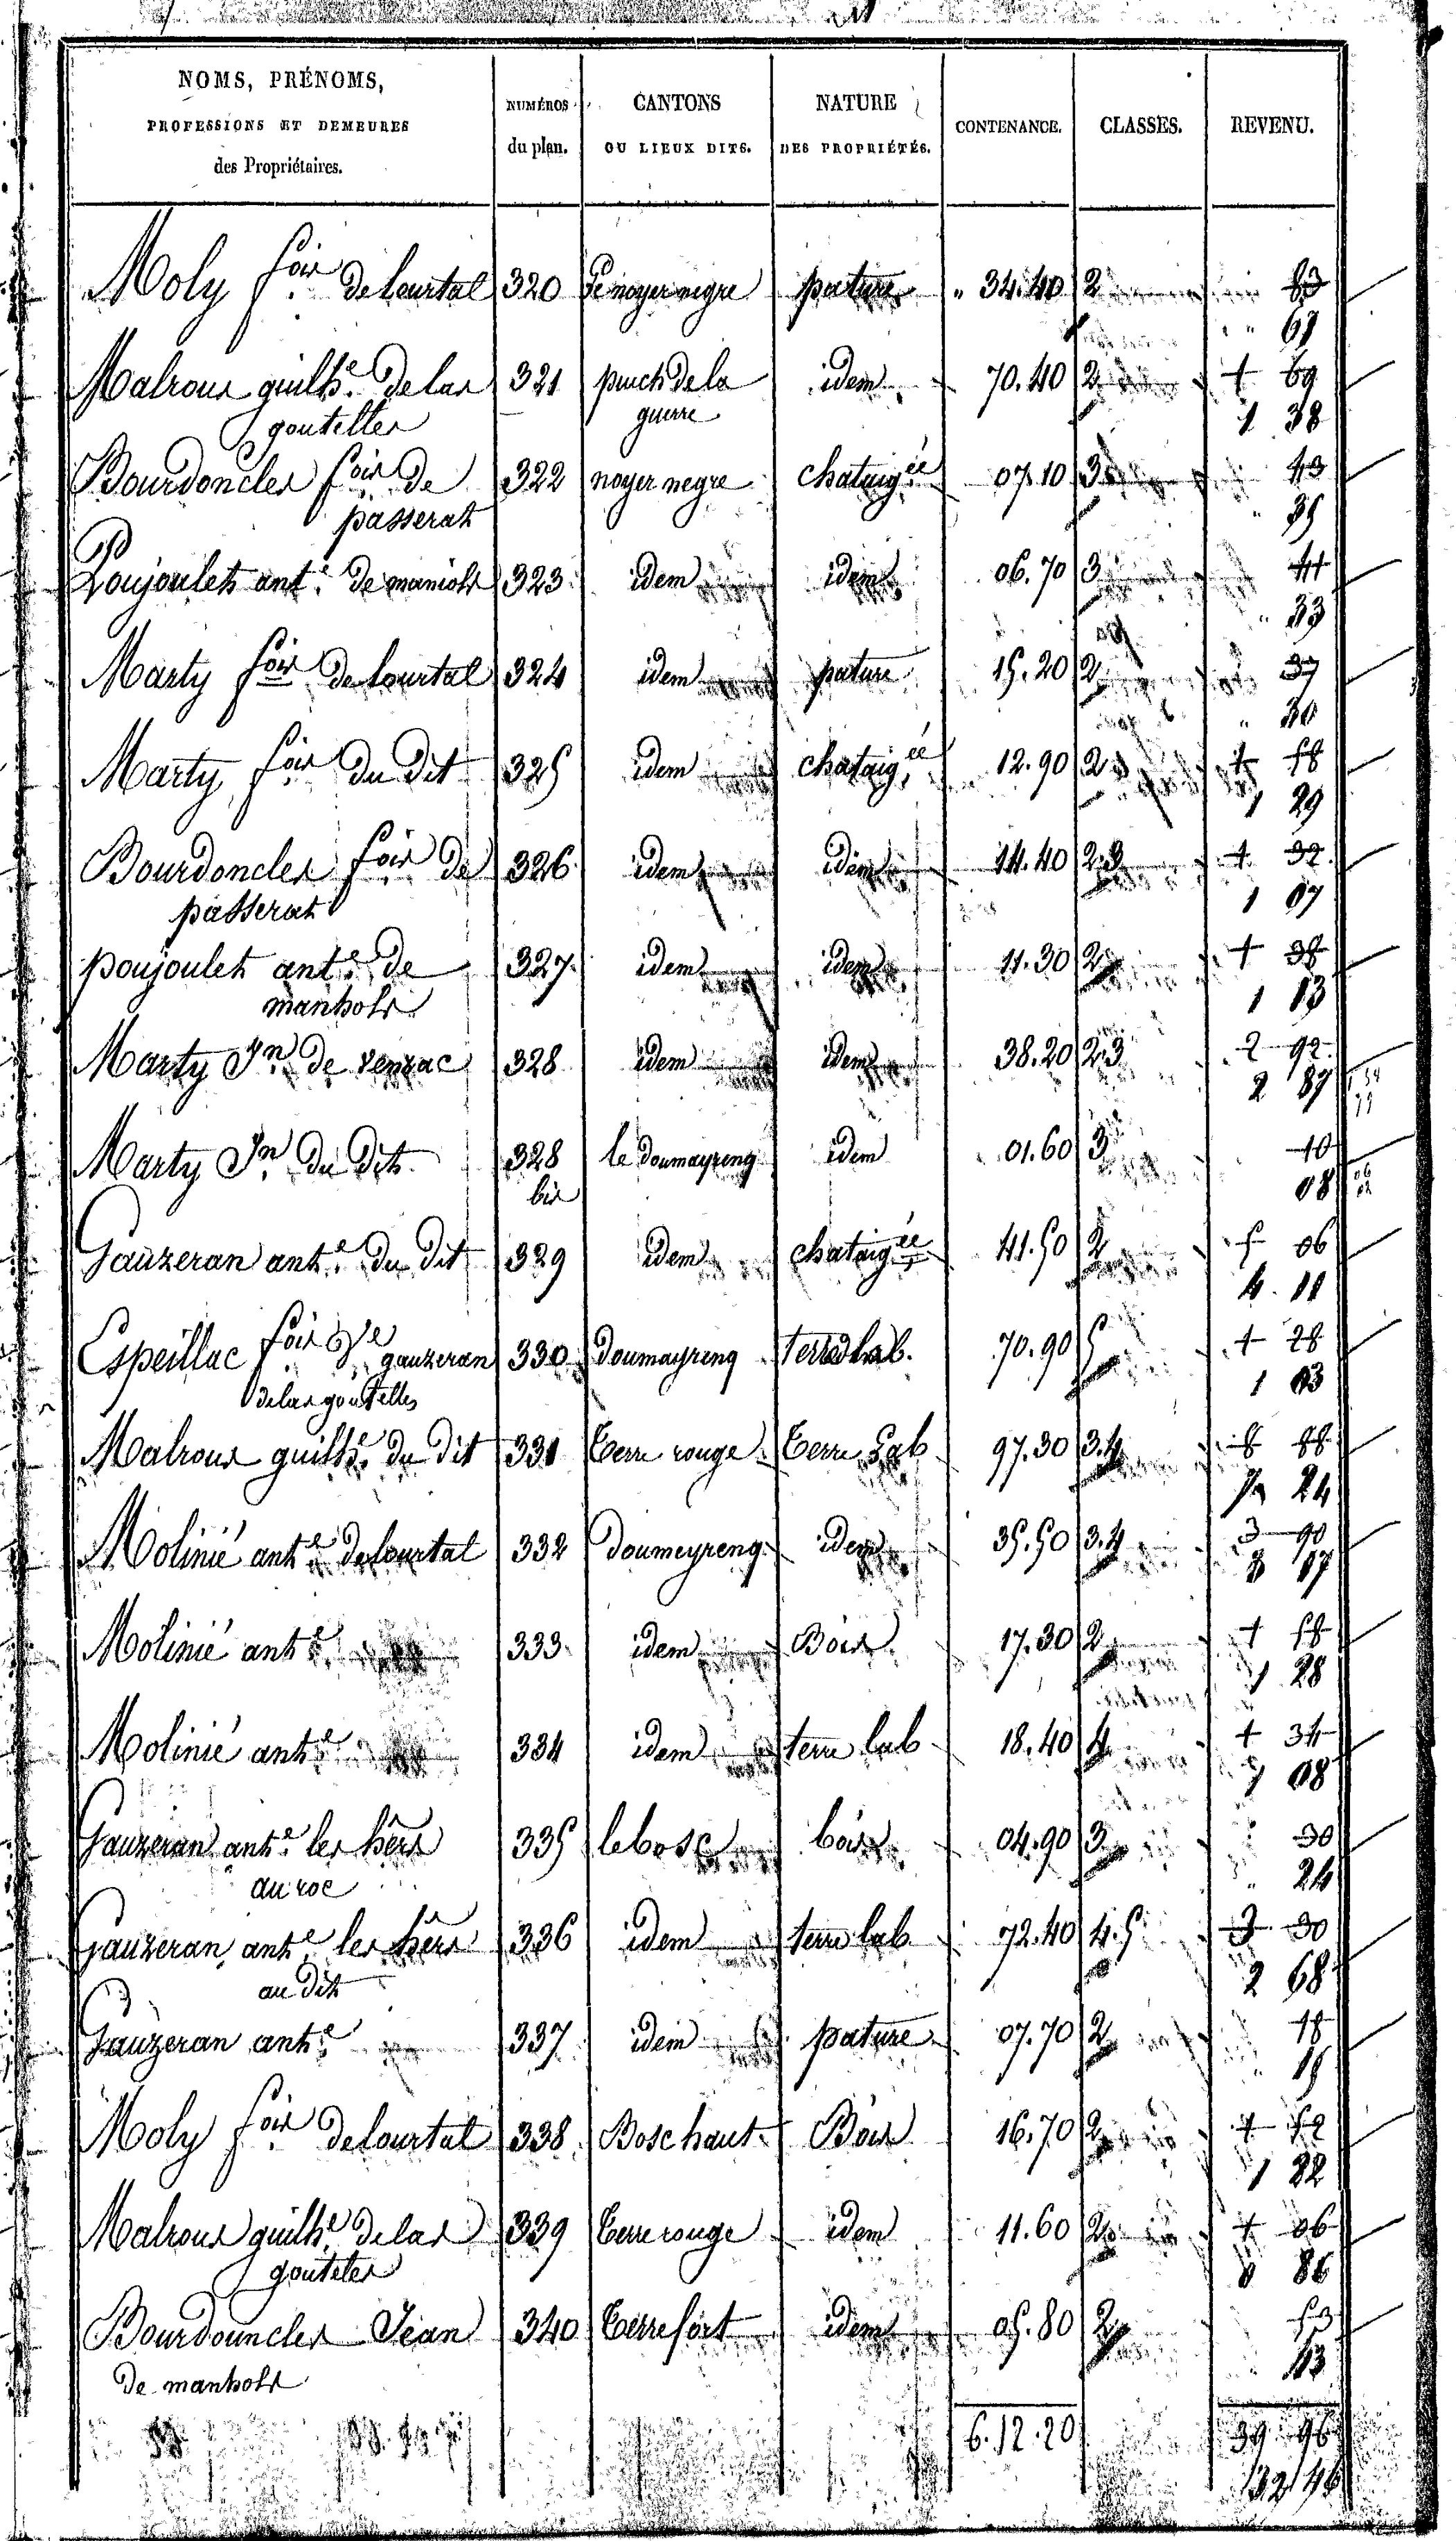 NOMS, PRÉNOMS, PROFESSIONS ET DEMEURES des Propriétaires. NUMÉROS du plan. CANTONS OU LIEUX DITS. NATURE DES PROPRIÉTÉS. CONTENANCE. CLASSES. REVENU.
Moly fois de Lourtal 320 noyer negre pature 34.40 2 83
67
Malroux guilhe de las 321 puech de la idem 70.40 2 1 69
gouttelles guerre 1 38
Bourdoncles fois de 322 noyer negre chataigée 07.10 3 43
passerat 35
Poujoulet ante de manhols 323 idem idem 06.70 3 41
33
Marty fois de Lourtal 324 idem pature 15.20 2 37
30
Marty fois du dit 325 idem chataigée 12.90 2 1 58
1 29
Bourdoncles fois de 326 idem idem 14.40 2.3 1 32
passerat 1 07
poujoulet ante de 327 idem idem 11.30 2 1 38
manhols 1 13
Marty Jn de venzac 328 idem idem 38.20 2.3 2 92
2 87
Marty Jn du dit 328 le doumayreng idem 01.60 3 10
bis 08
Gauzeran ante du dit 329 idem chataigée 41.50 2 5 06
4 11
Espeillac fois Ve gauzeran 330 doumayreng terre lab. 70.90 5 1 28
de las goutelles 1 03
Malroux guilhe du dit 331 terre rouge terre Lab 97.30 3.4 8 88
7 24
Molinié ante de Lourtal 332 doumeyreng idem 35.50 3.4 3 90
3 17
Molinié ante 333 idem Bois 17.30 2 1 58
1 28
Molinié ante 334 idem terre lab 18.40 4 1 34
1 08
Gauzeran ante les hers 335 le bosc bois 04.90 3 30
du roc 24
Gauzeran ante les hers 336 idem terre lab 72.40 4.5 3 30
au dit 2 68
Gauzeran ante 337 idem pature 07.70 2 18
15
Moly fois de Lourtal 338 Bosc haut Bois 16.70 2 1 52
1 22
Malroux guilhe de las 339 terre rouge idem 11.60 2 1 06
gouteles 86
Bourdouncles Jean 340 terrefort idem 05.80 2 53
de manhols 43
6.12.20 39 96